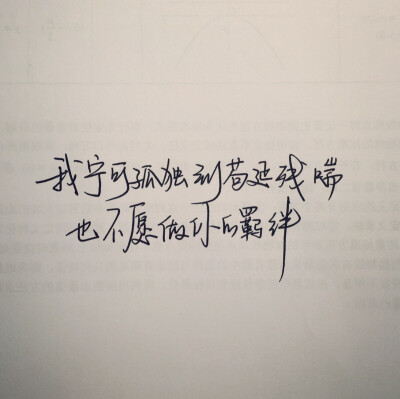 我宁可孤独到苟延残喘
也不愿做你的羁绊